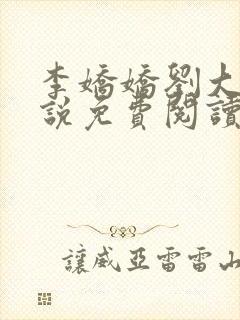 李嬌嬌劉大
說免費閱讀
讓威亞雷雷山